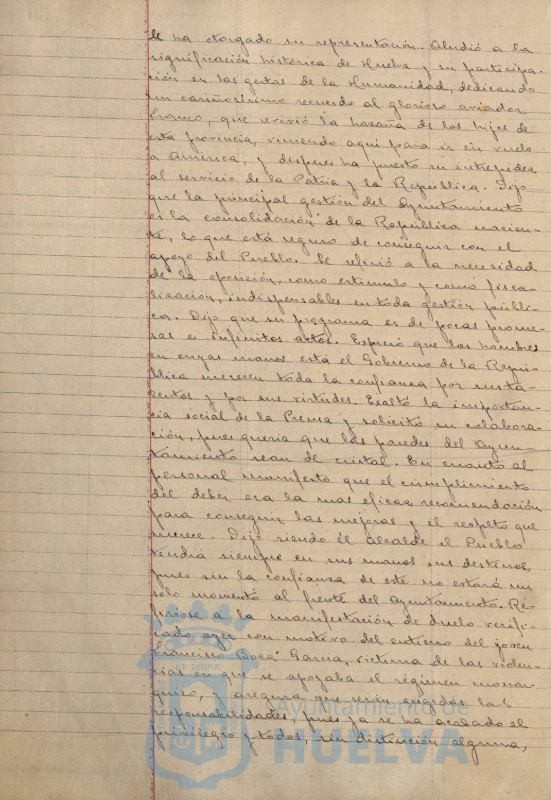 le ha otorgado su representación. Aludió a la
significación histórica de Huelva y su participa-
ción en las gestas de la Humanidad, dedicando
un cariñosísimo recuerdo al glorioso aviador
Franco, que revivió la hazaña de los hijos de
esta provincia, viniendo aquí para ir en vuelo
a América, y despues ha puesto su intrepidez
al servicio de la Patria y la República. Dijo
que la principal gestión del Ayuntamiento
es la consolidación de la República nacien-
te, lo que está seguro de conseguir con el
apoyo del Pueblo. Se refirió a la necesidad
de la oposición, como estimulo y como fisca-
lización, indispensables en toda gestión públi-
ca. Dijo que su programa es de pocas prome-
sas e infinitos actos. Expresó que los hombres
en cuyas manos está el Gobierno de la Repú-
blica merecen toda la confianza por sus ta-
lentos y por sus virtudes. Exaltó la importan-
cia social de la Prensa y solicitó su colabora-
ción, pues queria que las paredes del Ayun-
tamiento sean de cristal. En cuanto al
personal manifestó que el cumplimiento
del deber era la mas eficaz recomendación
para conseguir las mejoras y el respeto que
merece. Dijo siendo él alcalde el Pueblo
tendrá siempre en sus manos sus destinos,
pues sin la confianza de este no estará un
solo momento al frente del Ayuntamiento. Re-
firiose a la manifestación de duelo verifi-
cada ayer con motivo del entierro del joven
Francisco Garcia, victima de las violen-
cias en que se apoyaba el régimen monar-
quico, y asegura que serán exigidas las
responsabilidades, pues ya se ha acabado el
privilegio y todos, sin distinción alguna,
ET TERRÆ
Ayuntamiento de
HUELVA